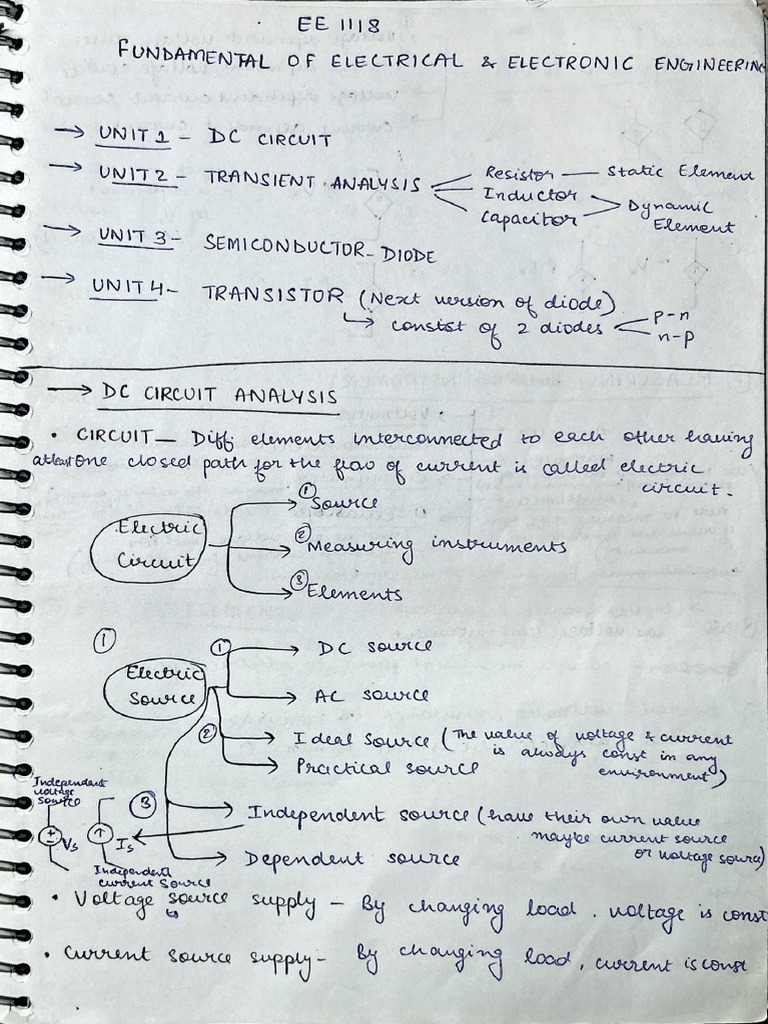 EE 1118
FUNDAMENTAL OF ELECTRICAL & ELECTRONIC ENGINEERING
→ UNIT 1 - DC CIRCUIT
→ UNIT 2 - TRANSIENT ANALYSIS
Resistor — Static Element
Inductor
Capacitor
Dynamic
Element
→ UNIT 3 - SEMICONDUCTOR-DIODE
→ UNIT 4 - TRANSISTOR (Next version of diode)
↳ consist of 2 diodes
p-n
n-p
→ DC CIRCUIT ANALYSIS
• CIRCUIT — Diff. elements interconnected to each other having
atleast one closed path for the flow of current is called electric
circuit.
Electric
Circuit
① Source
② Measuring instruments
③ Elements
①
Electric
Source
① DC source
AC source
② Ideal source (The value of voltage & current
is always const in any
environment)
Practical source
③ Independent source (have their own value
maybe current source
or voltage source)
Dependent source
Independent
voltage
source
+
-
Vs
Is
Independent
current source
• Voltage source supply - By changing load, voltage is const
• Current source supply - By changing load, current is const